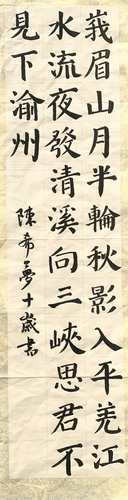 莪眉山月半輪秋影入平羌江
水流夜發清溪向三峽思君不
見下渝州
陳希夢十歲書